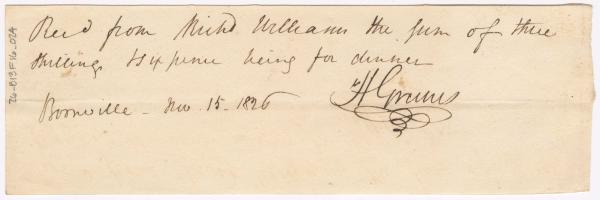 Recd from Michd Williams the sum of three
shillings & six pence being for dinner
Boonville - Nov. 15 - 1826
H Graves
76-B13F16_024